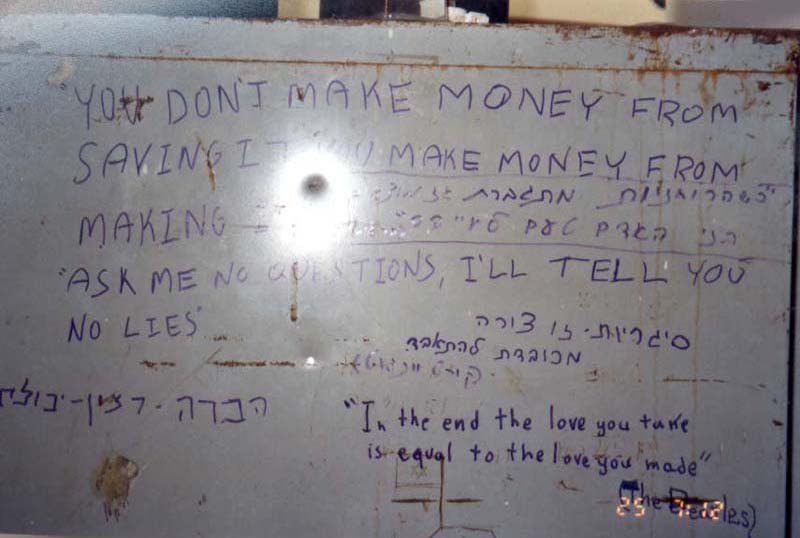 "YOU DON'T MAKE MONEY FROM
SAVING IT YOU MAKE MONEY FROM
"כשהרוחניות מתגברת
MAKING
האדם טעם
"ASK ME NO QUESTIONS, I'LL TELL YOU
NO LIES"
סיגריות- זו צורה
מכובדת להתאבד
הכרה - רצון - יכולת
"In the end the love you take
is equal to the love you made"
(The Beatles)